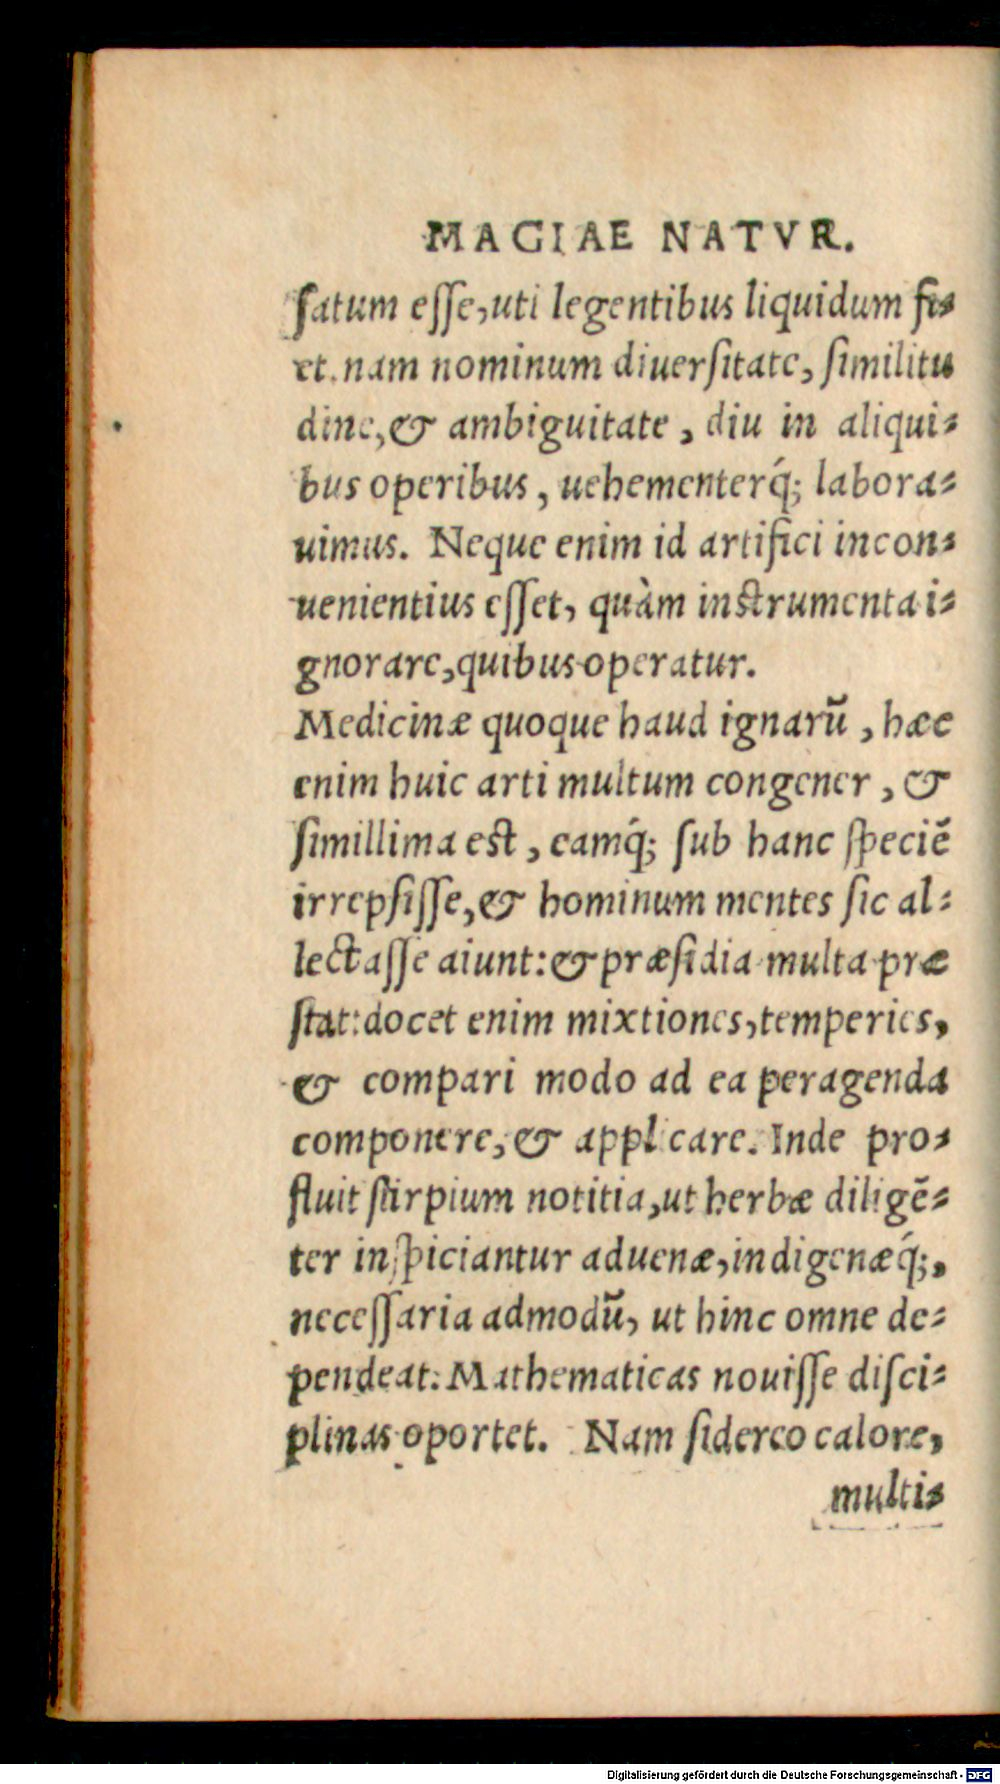 MAGIAE NATVR.
ſatum eſſe, uti legentibus liquidum fi⸗
et. nam nominum diuerſitate, ſimilitu
dine, & ambiguitate, diu in aliqui⸗
bus operibus, uehementerq́; labora⸗
uimus. Neque enim id artifici incon⸗
uenientius eſſet, quàm inſtrumenta i⸗
gnorare, quibus operatur.
Medicinæ quoque haud ignarũ, hæc
enim huic arti multum congener, &
ſimillima eſt, eamq́; ſub hanc ſpeciẽ
irrepſiſſe, & hominum mentes ſic al⸗
lectaſſe aiunt: & præſidia multa præ
ſtat: docet enim mixtiones, temperies,
& compari modo ad ea peragenda
componere, & applicare. Inde pro⸗
fluit ſtirpium notitia, ut herbæ diligẽ⸗
ter inſpiciantur aduenæ, indigenæq́;,
neceſſaria admodũ, ut hinc omne de⸗
pendeat. Mathematicas nouiſſe diſci⸗
plinas oportet. Nam ſidereo calore,
multis
Digitalisierung gefördert durch die Deutsche Forschungsgemeinschaft - DFG